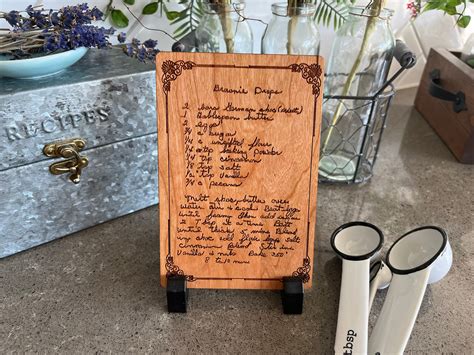 RECIPES
Brownie Drops
2 bars German choc (sweet)
1 Tablespoon butter
2 eggs
3/4 c sugar
1/4 c unsifted flour
1/4 tsp baking powder
1/4 tsp cinnamon
1/8 tsp salt
1/2 tsp vanilla
3/4 c pecans
Melt choc, butter over
water and cool Beat eggs
until foamy then add sugar
2 T at a time Beat
until thick 5 mins Blend
in choc add flour bkp salt
cinnamon Blend Stir in
vanilla & nuts Bake 350°
8 to 10 min
tbsp